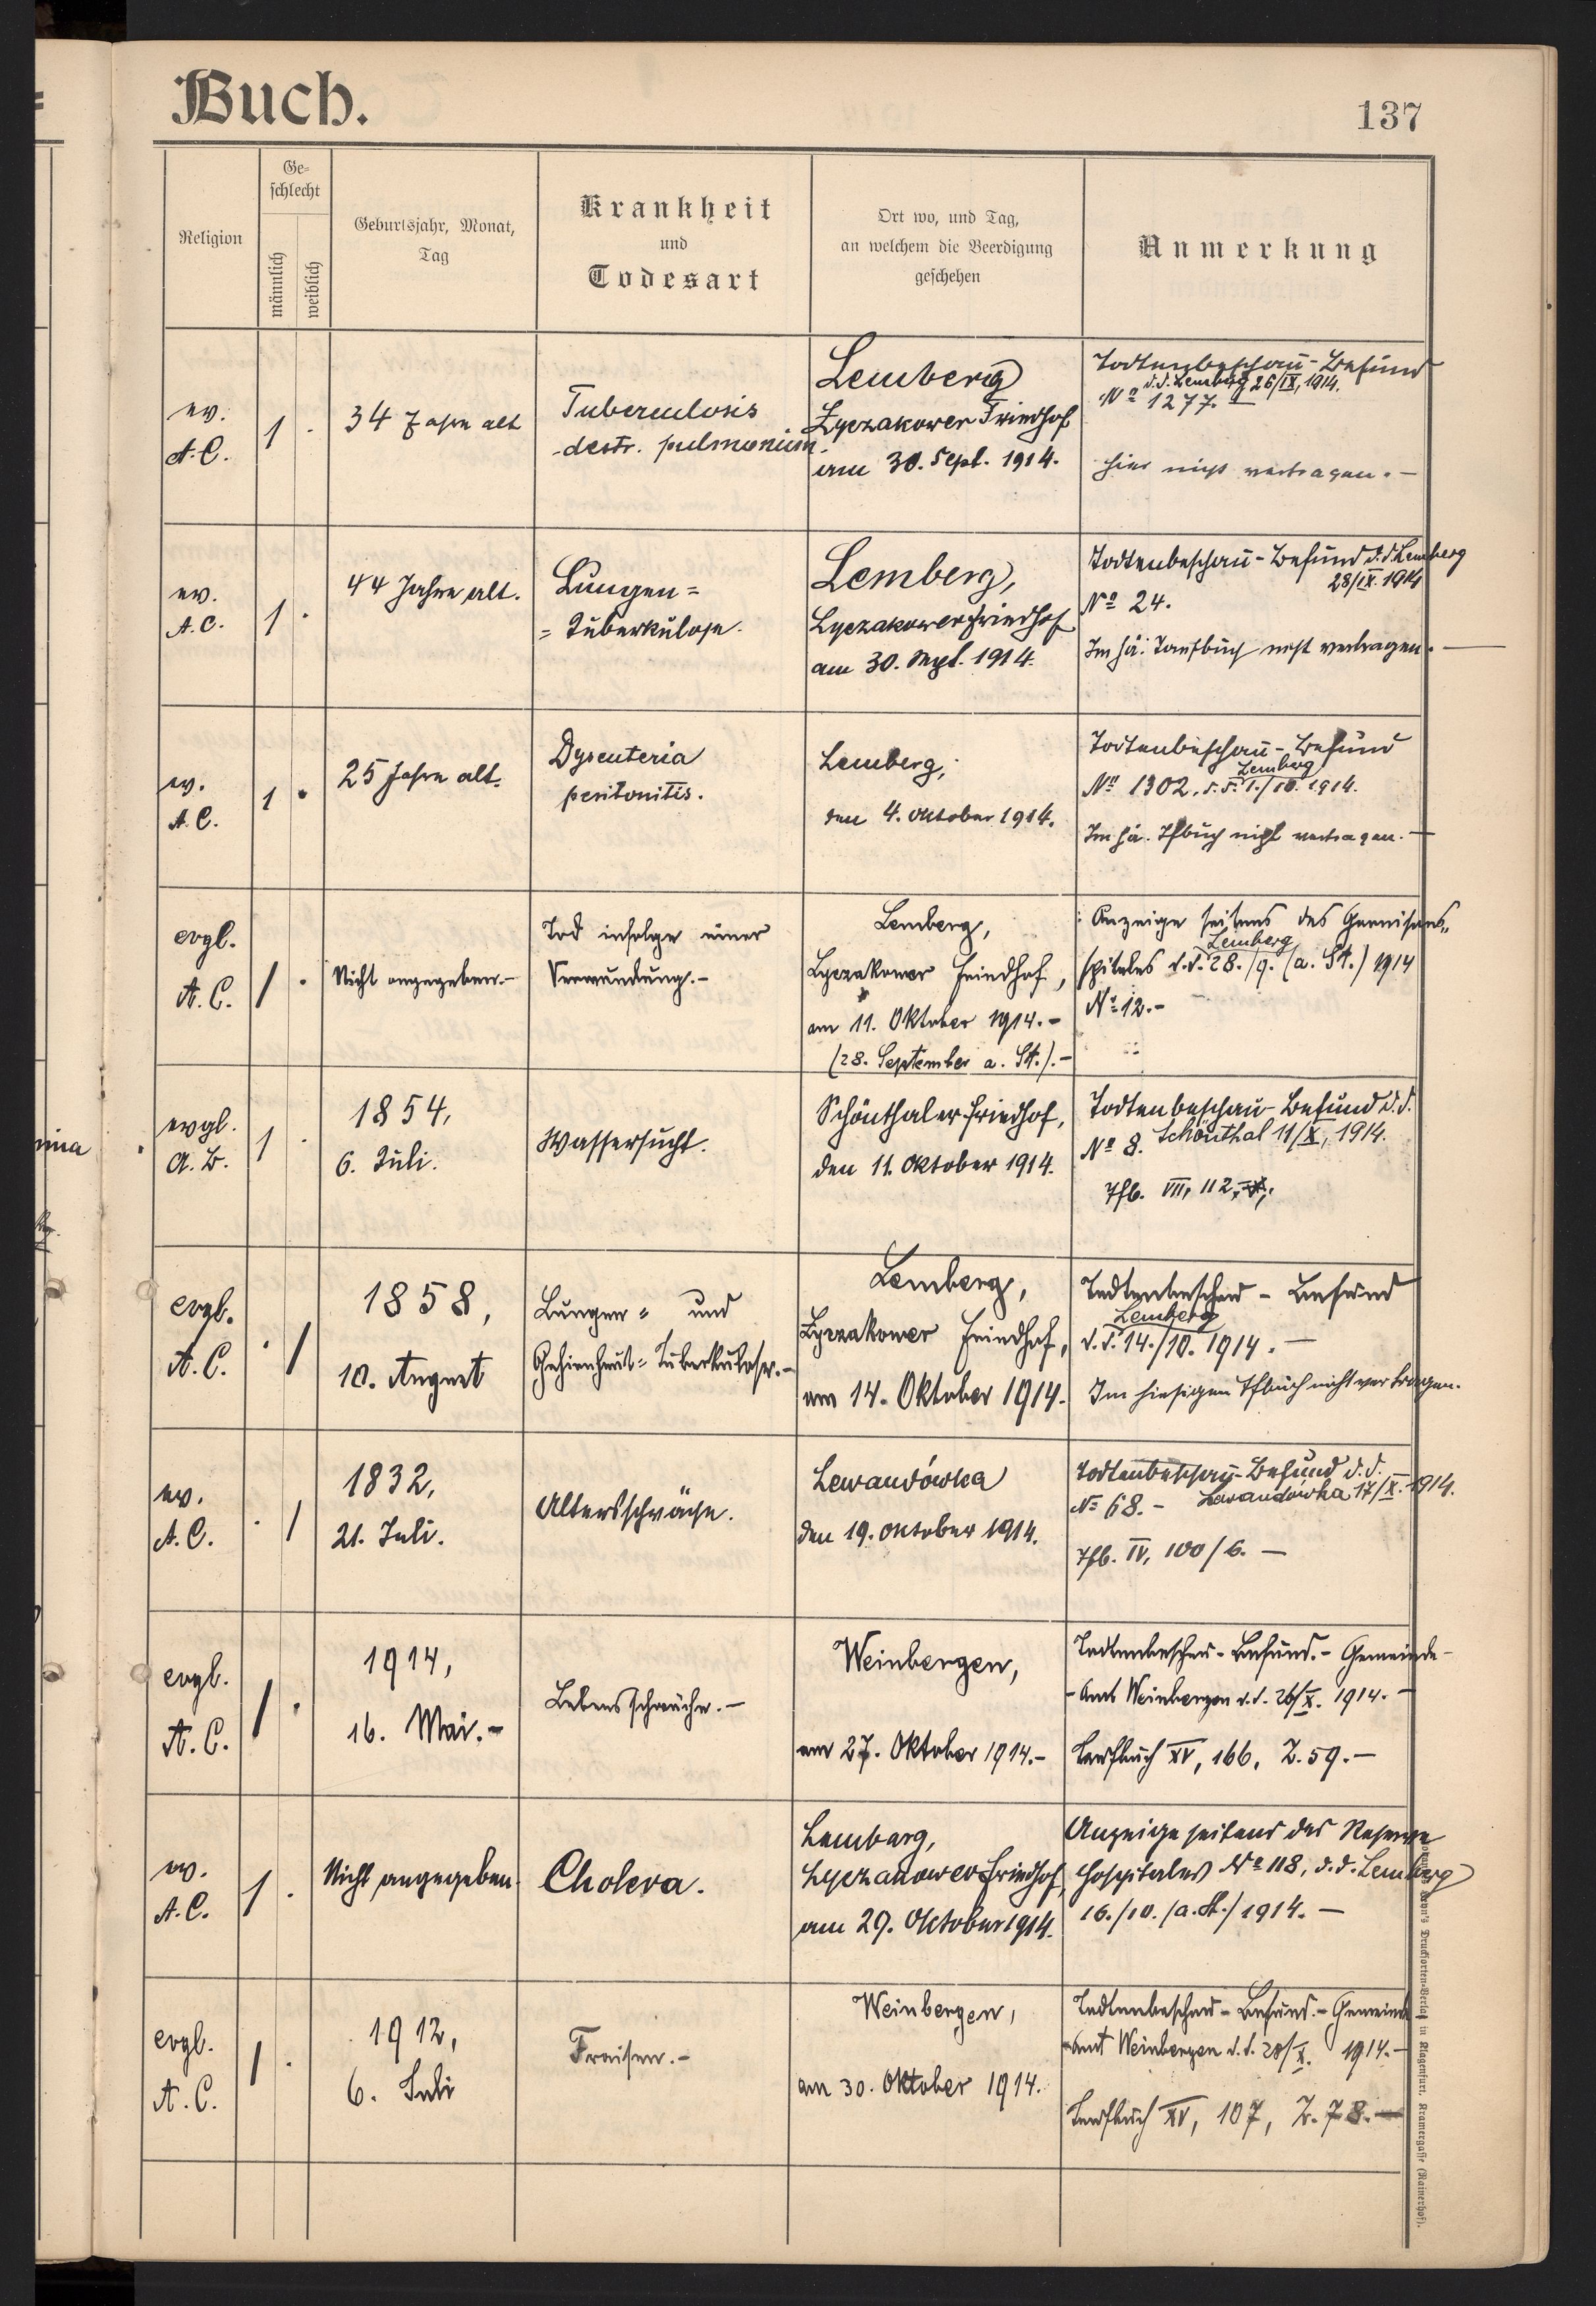 Buch.
137
Religion
Ge-
schlecht
männlich
weiblich
Geburtsjahr, Monat,
Tag
Krankheit
und
Todesart
Ort wo, und Tag,
an welchem die Beerdigung
geschehen
Anmerkung
ev.
A.C.
1 .
34 Jahre alt
Tuberculosis
destr. pulmonium.
Lemberg
Lyczakower Friedhof
am 30. Sept. 1914.
Todtenbeschau-Befund
d.d. Lemberg 26/IX, 1914.
No 1277. —
hier nicht vertragen. —
ev.
A.C.
1 .
44 Jahre alt.
Lungen=
=Tuberkulose.
Lemberg,
Lyczakower Friedhof
am 30. Sept. 1914.
Todtenbeschau-Befund d.d. Lemberg
28/IX. 1914
No 24.
Im hä. Taufbuch nicht vertragen. —
ev.
A.C.
1 .
25 Jahre alt.
Dysenteria
peritonitis.
Lemberg,
den 4. Oktober 1914.
Todtenbeschau-Befund
Lemberg
No 1302, d.d. 1./10. 1914.
Im hä. Tfbuch nicht vertragen. —
evgl.
A.C.
1 .
Nicht angegeben.-
Tod infolge einer
Verwundung.-
Lemberg,
Lyczakower Friedhof,
am 11. Oktober 1914.-
(28. September a. St.).-
Anzeige seitens des Garnisons-
Lemberg
spitales d.d. 28./9. (a. St.) 1914
No 12.-
evgl.
A.B.
1 .
1854,
6. Juli.
Wassersucht.
Schönthaler Friedhof,
den 11. Oktober 1914.
Todtenbeschau-Befund d.d.
No 8. Schönthal 11/X, 1914.
Tfb. VII, 112,
evgl.
A.C.
. 1
1858,
10. August
Lungen= und
Gehirnhaut=Tuberkulose.-
Lemberg,
Lyczakower Friedhof,
am 14. Oktober 1914.
Todtenbeschau - Befund
Lemberg
d.d. 14./10. 1914. —
Im hiesigen Tfbuch nicht vertragen.
ev.
A.C.
. 1
1832,
21. Juli.
Altersschwäche.
Lewandówka
den 19. Oktober 1914.
Todtenbeschau-Befund d.d.
No 68.- Lewandówka 17/X. 1914.
Tfb. IV, 100/6. —
evgl.
A.C.
1 .
1914,
16. Mai.-
Lebensschwäche.-
Weinbergen,
am 27. Oktober 1914.-
Todtenbeschau-Befund.- Gemeinde-
-Amt Weinbergen d.d. 26/X. 1914.-
Taufbuch XV, 166, Z. 59.-
ev.
A.C.
1 .
Nicht angegeben.
Cholera.
Lemberg,
Lyczakower Friedhof,
am 29. Oktober 1914.
Anzeige seitens des Reserve
Hospitales No 118, d.d. Lemberg
16./10. (a. St.) 1914. —
evgl.
A.C.
1 .
1912,
6. Juli
Fraisen.-
Weinbergen,
am 30. Oktober 1914.
Todtenbeschau-Befund.- Gemeinde
-Amt Weinbergen d.d. 28/X. 1914.-
Taufbuch XV, 107, Z. 78.-
Drucksorten-Verlag in Klagenfurt, Kramergasse (Rainerhof).